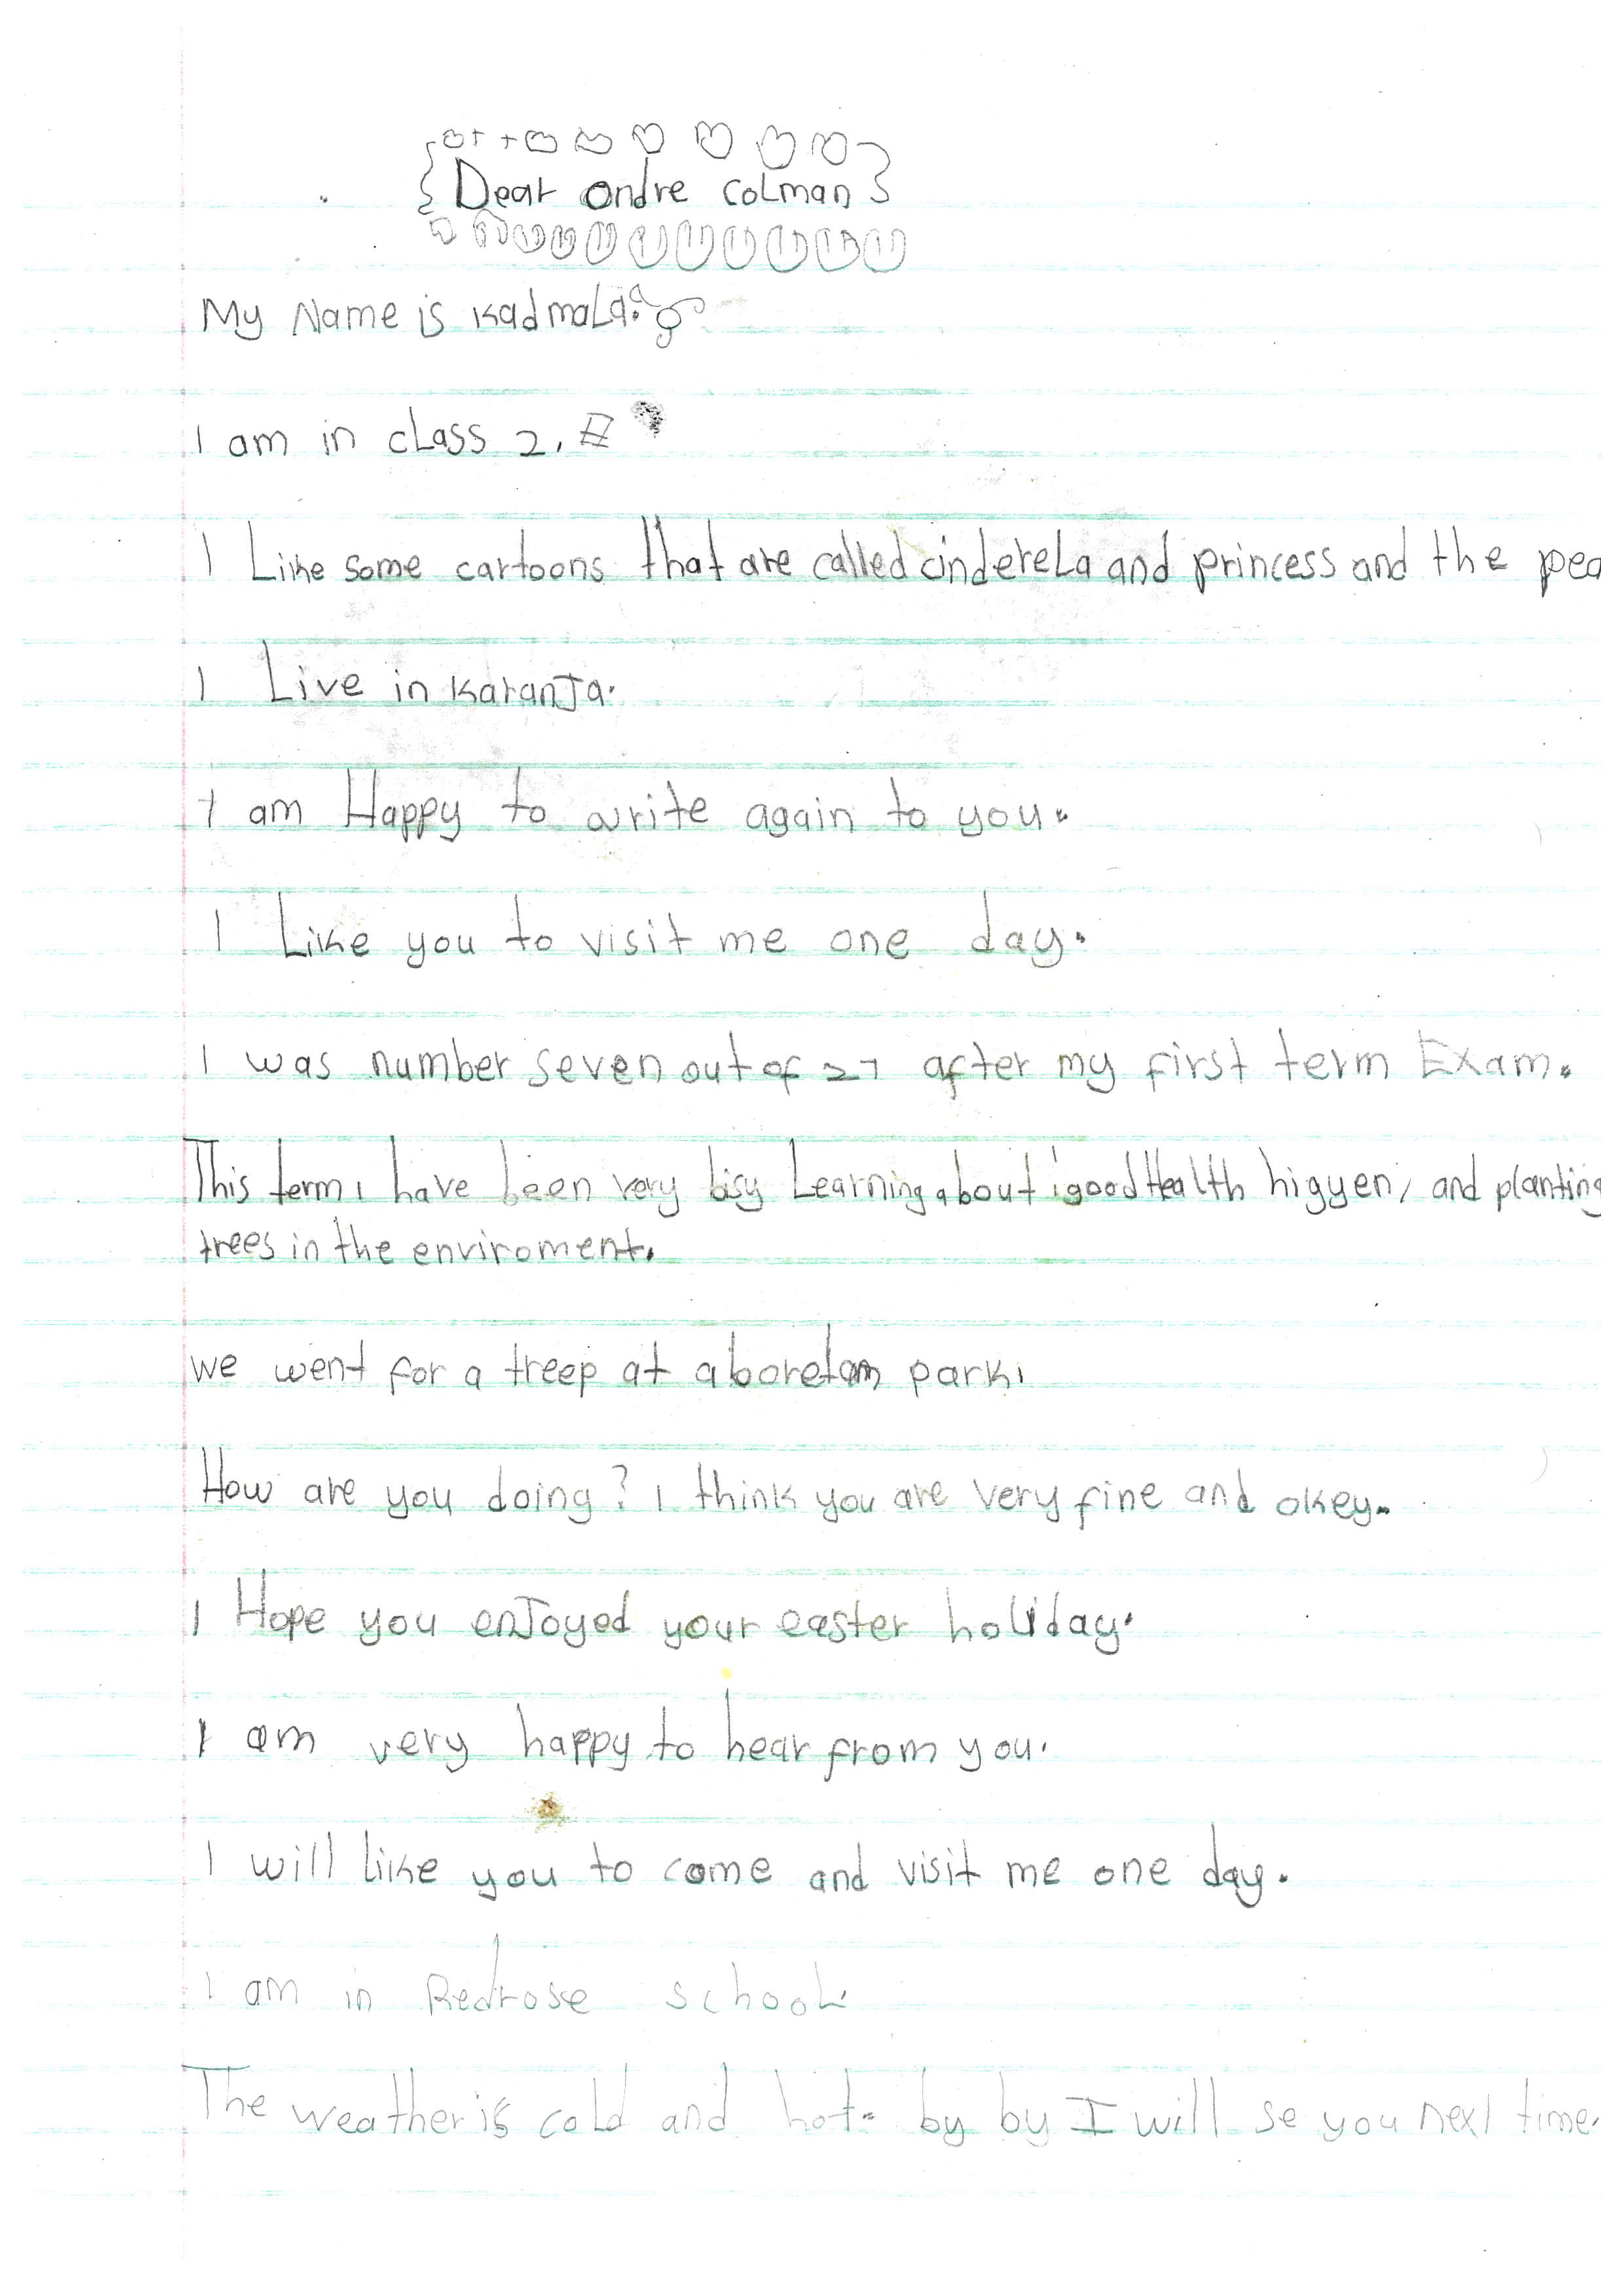 Dear ondre coLman
My Name is Kadmala.
I am in cLass 2.
I Liike some cartoons that are called cindereLa and princess and the pea
I Live in KaranJa.
I am Happy to write again to you.
I Like you to visit me one day.
I was number seven out of 27 after my first term Exam.
This term I have been very bisy Learning about good Health higyen, and planting
trees in the enviroment.
we went for a treep at aboretam park.
How are you doing? I think you are very fine and okey.
I Hope you enJoyed your easter holiday.
I am very happy to hear from you.
I will liike you to come and visit me one day.
I am in Redrose school.
The weather is cold and hot. by by I will se you next time.